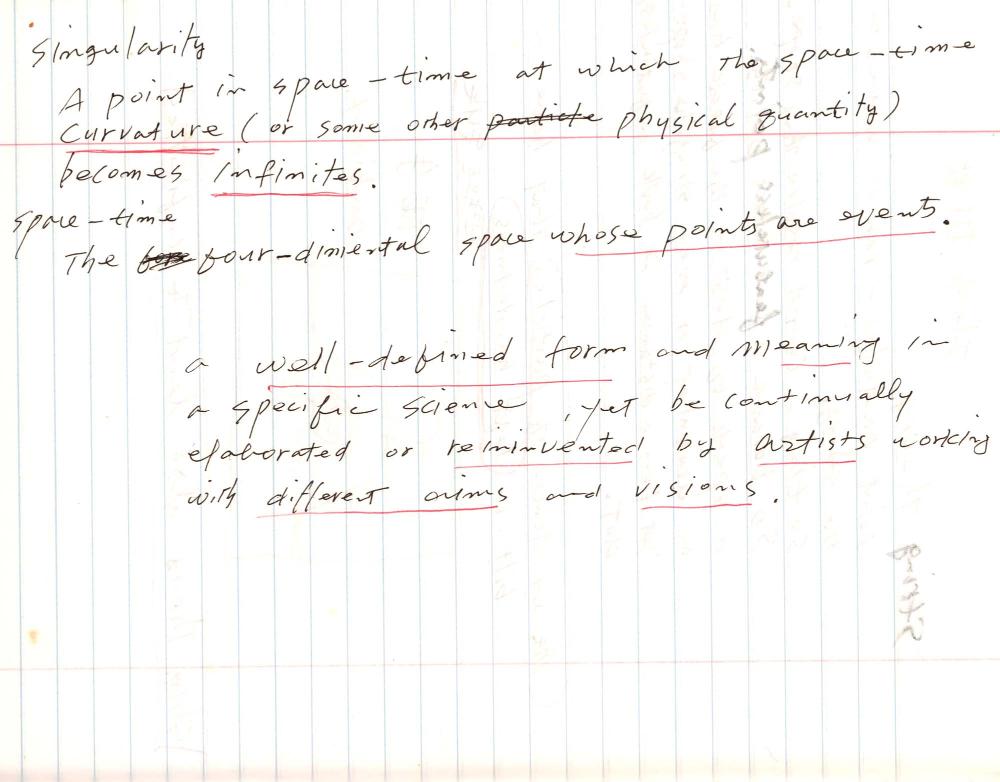 Singularity
A point in space-time at which the space-time
curvature (or some other particle physical quantity)
becomes infinites.
space-time
The four-dimiental space whose points are events.
a well-defined form and meaning in
a specific science, yet be continually
elaborated or reininvented by artists working
with different aims and visions.
String